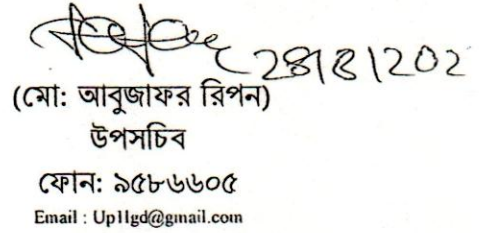 28/8/202
(মো: আবুজাফর রিপন)
উপসচিব
ফোন: ৯৫৮৬৬০৫
Email : Up1lgd@gmail.com